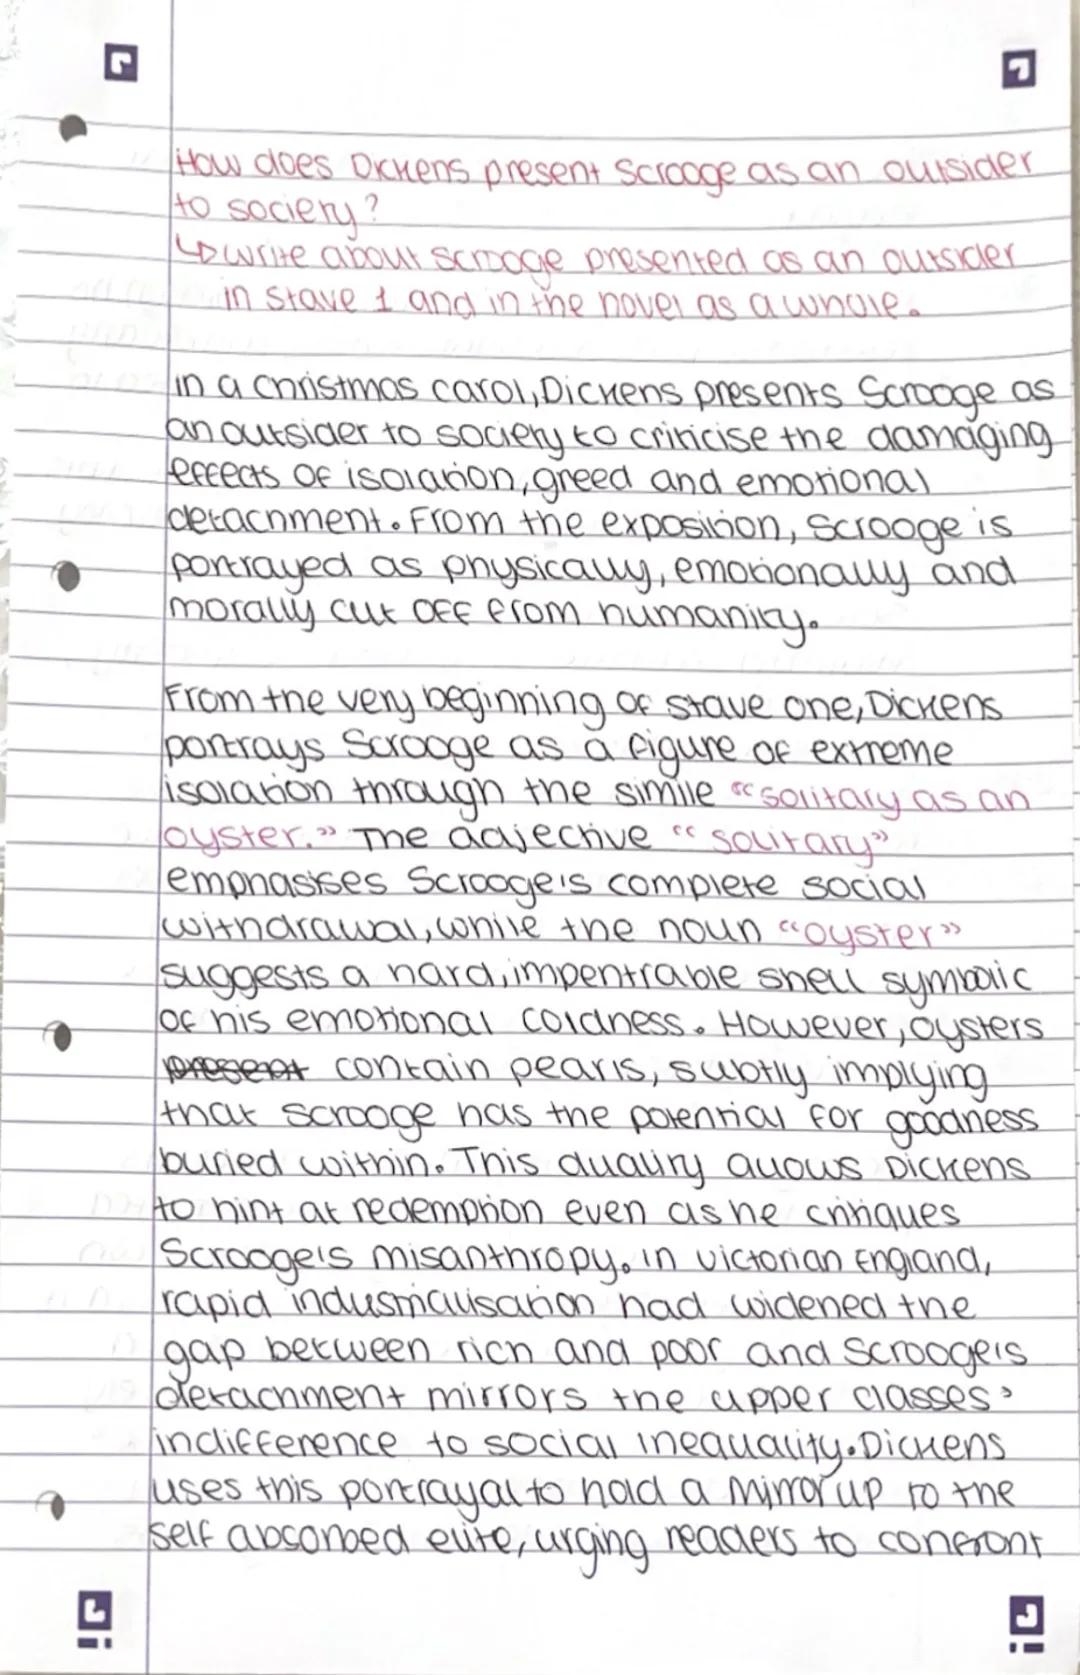 How does Dickens present Scrooge as an outsider
to society?
↳ write about scrooge presented as an outsider
in stave 1 and in the novel as a whole.
in a christmas carol, Dickens presents Scrooge as
an outsider to society to criticise the damaging
effects of isolation, greed and emotional
detachment. From the exposition, Scrooge is
portrayed as physically, emotionally and
morally cut off from humanity.
From the very beginning of stave one, Dickens
portrays Scrooge as a figure of extreme
isolation through the simile "solitary as an
oyster." The adjective "solitary"
emphasises Scrooge's complete social
withdrawal, while the noun "oyster"
suggests a hard, impentrable shell symbolic
of his emotional coldness. However, oysters
present contain pearls, subtly implying
that scrooge has the potential for goodness
buried within. This duality allows Dickens
to hint at redemption even as he critiques
Scrooge's misanthropy. in victorian England,
rapid industrialisation had widened the
gap between rich and poor and Scrooge's
detachment mirrors the upper classes'
indifference to social inequality. Dickens
uses this portrayal to hold a mirror up to the
self absorbed elite, urging readers to confront